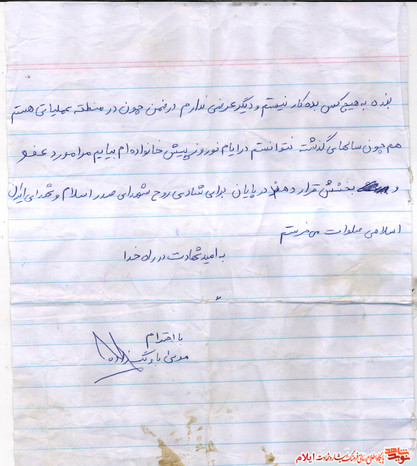 بنده به هیچ کس بدهکار نیستم و دیگر عرضی ندارم در ضمن چون در منطقه عملیاتی هستم
هم چون سالهای گذشته نتوانستم در ایام نوروز پیش خانواده ام بیایم مرا مورد عفو
و بخشش قرار دهند در پایان برای شادی روح شهدای صدر اسلام و شهدای ایران
اسلامی صلوات می فرستم
به امید شهادت در راه خدا
با احترام
نوید شاهد
پایگاه اطلاع رسانی فرهنگ ایثار و شهادت ایلام